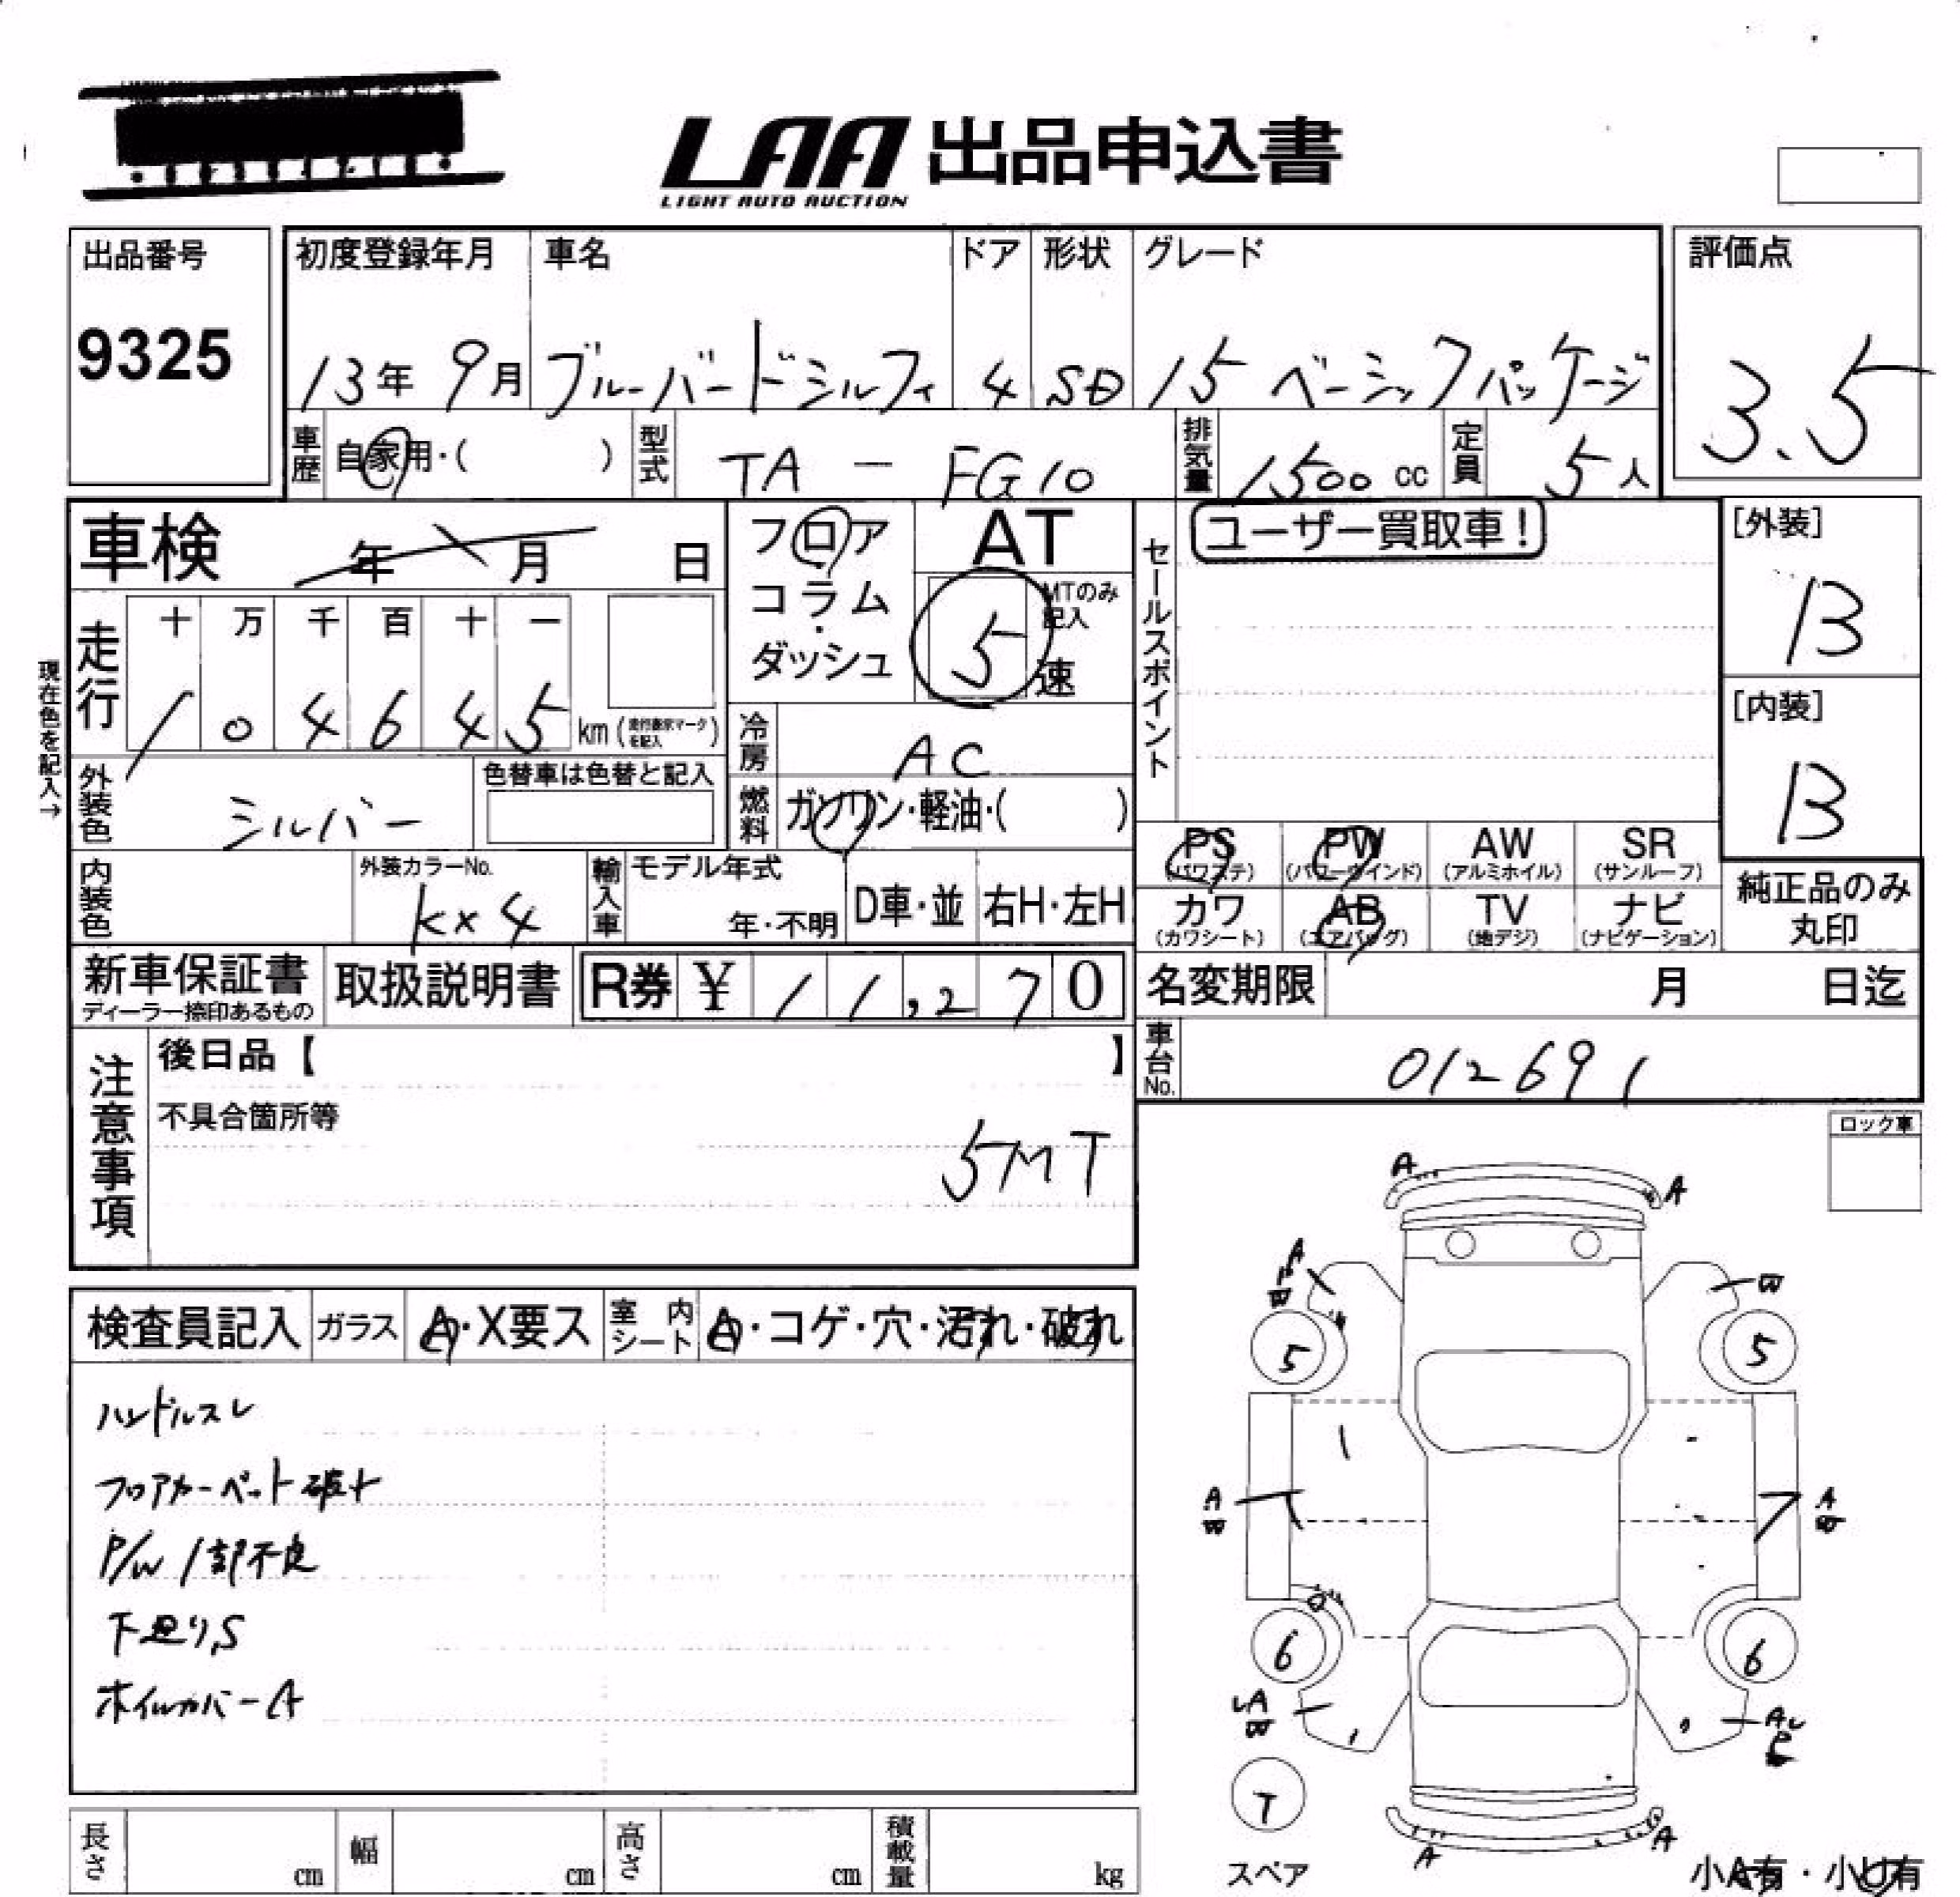 LAA 出品申込書
LIGHT AUTO AUCTION
出品番号
9325
初度登録年月
13年 9月
車名
ブルーバードシルフィ
ドア
4
形状
SD
グレード
15 ベーシックパッケージ
評価点
3.5
車歴
自家用・( )
型式
TA - FG10
排気量
1500 cc
定員
5人
車検 年 月 日
フロア
コラム
・
ダッシュ
AT
MTのみ記入
5
速
セールスポイント
ユーザー買取車!
[外装]
B
[内装]
B
現在色を記入→
走行
十 万 千 百 十 一
1 0 4 6 4 5 km (走行表示マークを記入)
冷房
AC
外装色
シルバー
色替車は色替と記入
燃料
ガソリン・軽油・( )
内装色
外装カラーNo.
KX4
輸入車
モデル年式
年・不明
D車・並
右H・左H
PS (パワステ)
PW (パワーウインド)
AW (アルミホイル)
SR (サンルーフ)
カワ (カワシート)
AB (エアバッグ)
TV (地デジ)
ナビ (ナビゲーション)
純正品のみ
丸印
新車保証書
ディーラー捺印あるもの
取扱説明書
R券 ¥ 11,270
名変期限 月 日迄
車台No.
012691
注意事項
後日品【 】
不具合箇所等
5MT
ロック車
検査員記入
ガラス
A・X要ス
室内シート
A・コゲ・穴・汚れ・破れ
ハンドルスレ
フロアカーペット破れ
P/W 1部不良
下廻りS
ホイルカバーA
A
A
A
P
W
W
5
5
A
W
A
W
6
6
LA
W
AU
P
T
スペア
A
A
小A有・小U有
長さ cm
幅 cm
高さ cm
積載量 kg